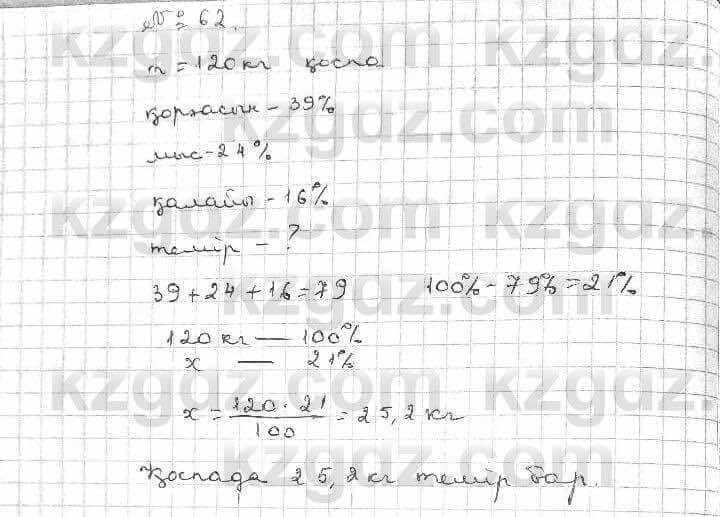 № 62.
m = 120 кг қоспа
қорғасын - 39%
мыс - 24%
қалайы - 16%
темір - ?
39 + 24 + 16 = 79 100% - 79% = 21%
120 кг — 100%
x — 21%
x = 120 · 21 / 100 = 25,2 кг
Қоспада 25,2 кг темір бар.
kzgdz.com
kzgdz.com
kzgdz.com
kzgdz.com
kzgdz.com
kzgdz.com